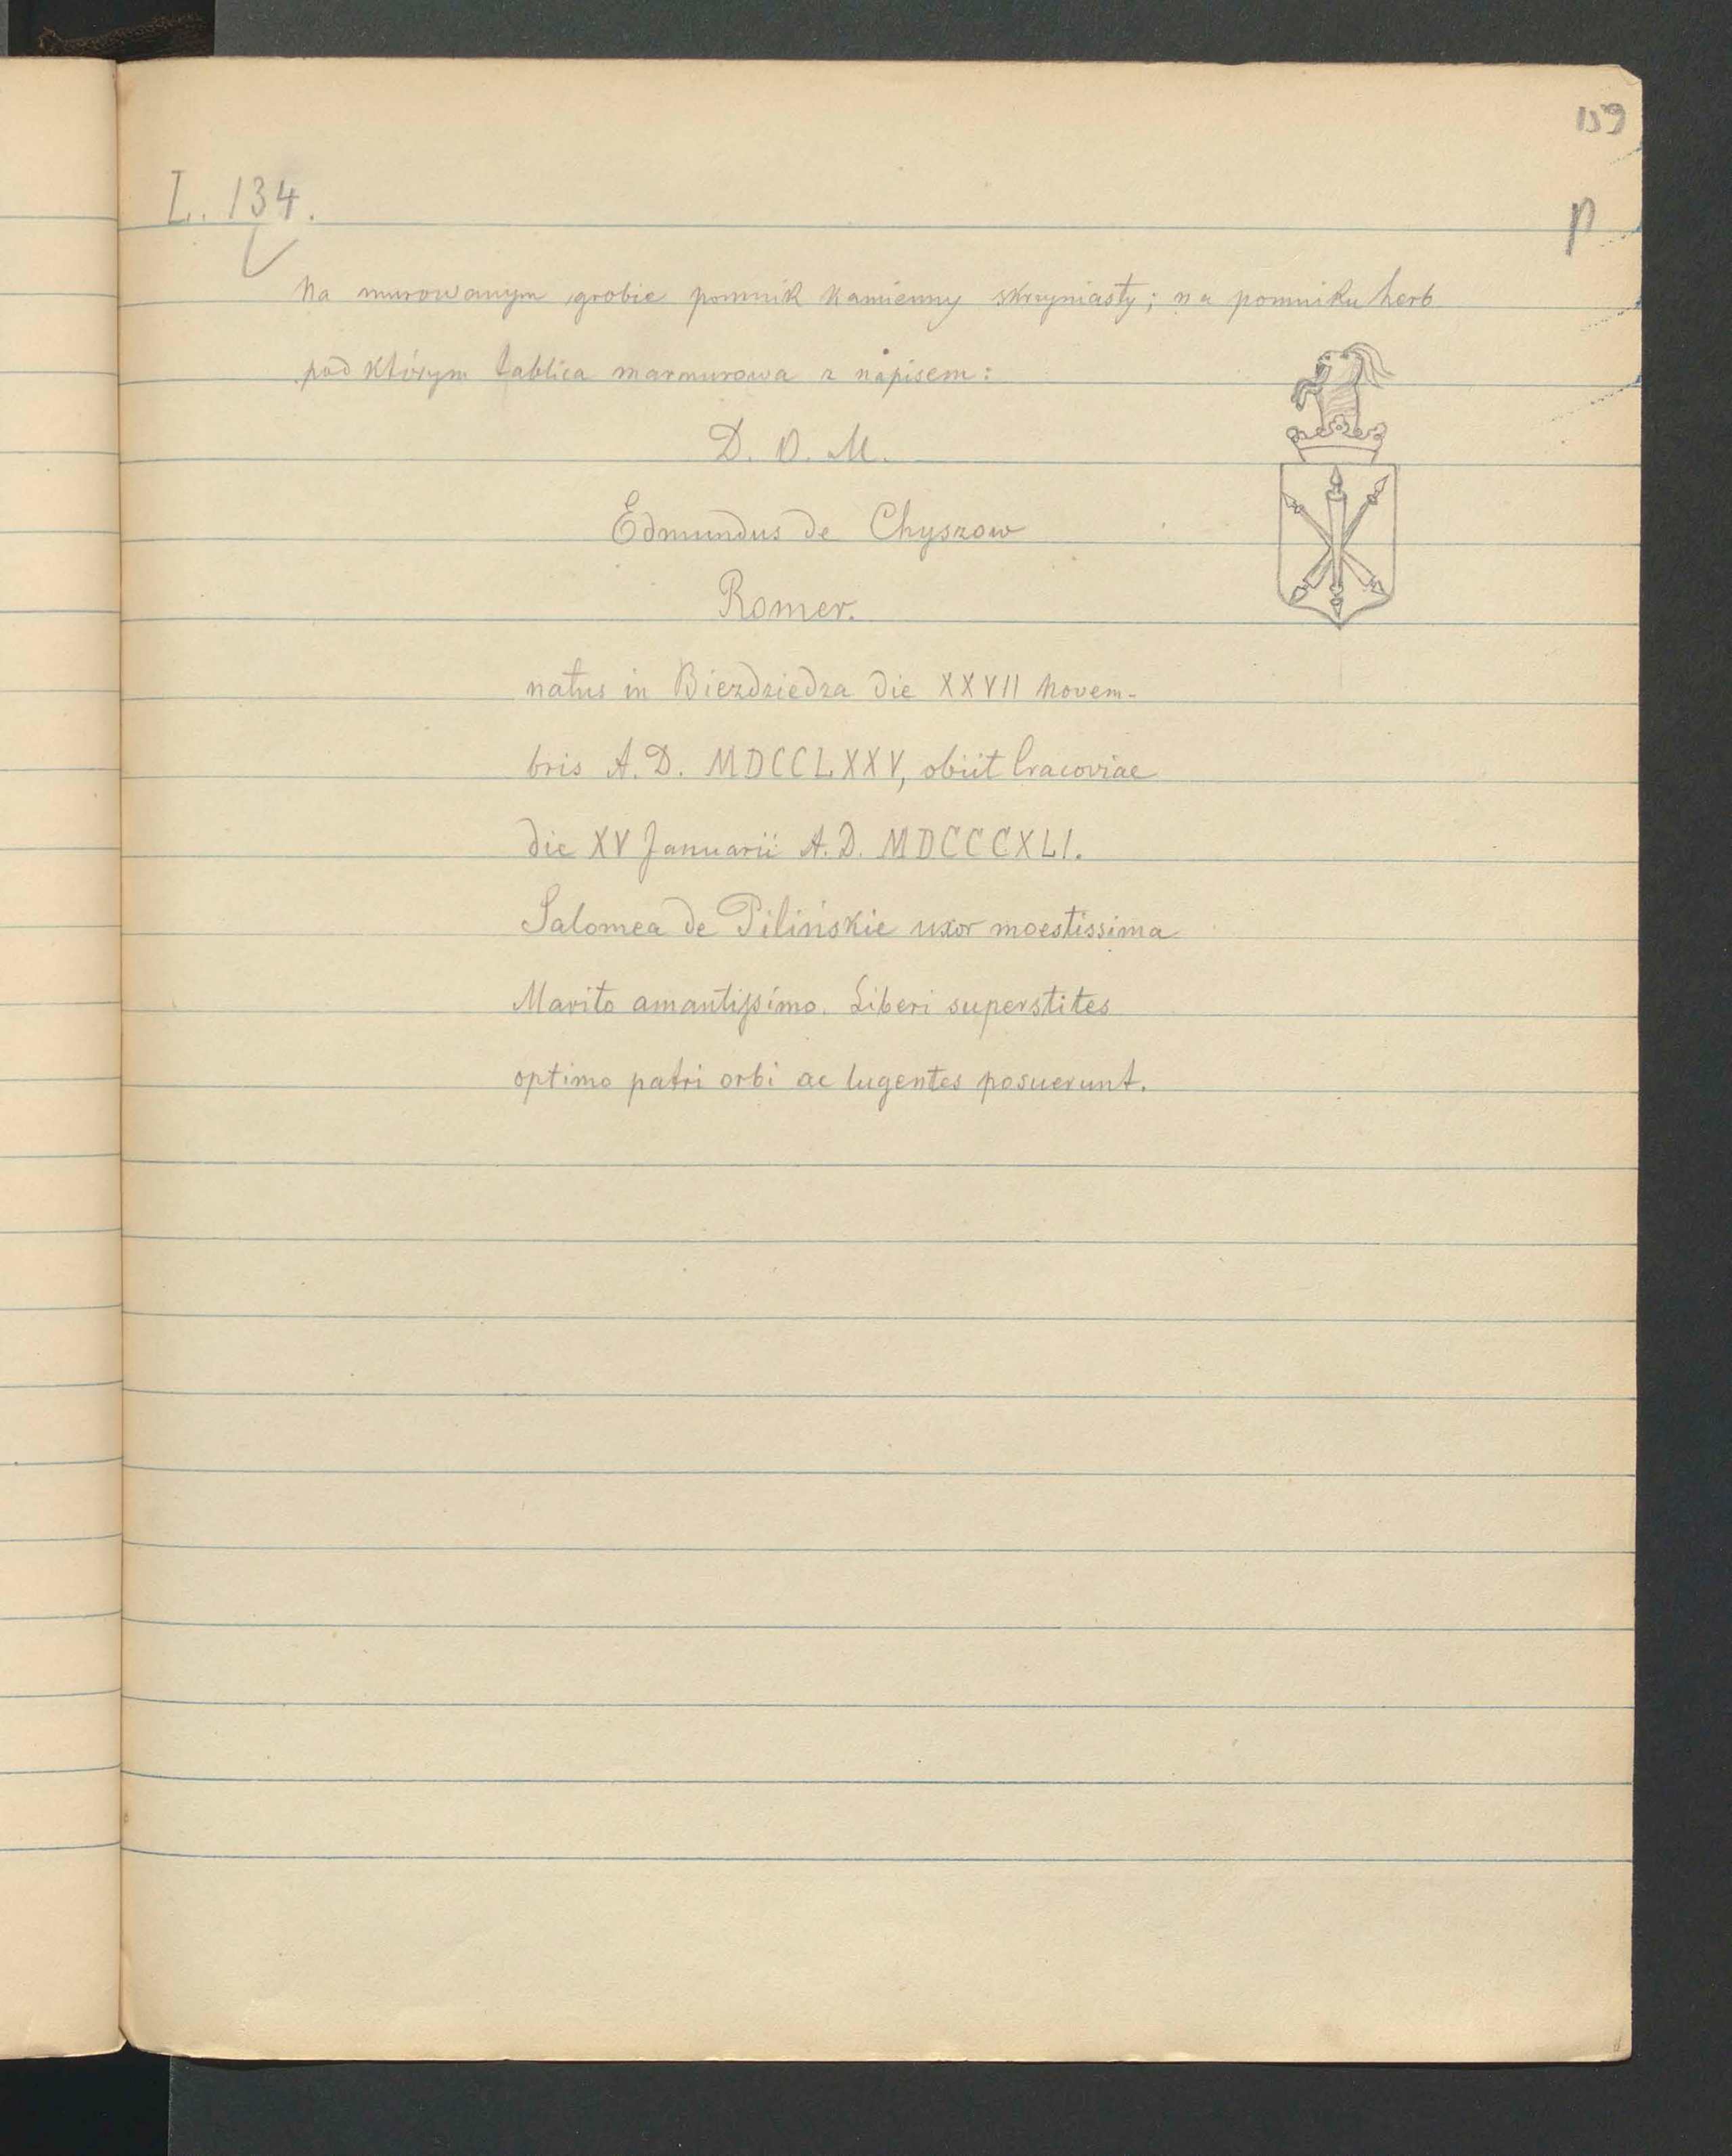 159
L. 134.
p
Na murowanym grobie pomnik kamienny skrzyniasty; na pomniku herb
pod którym tablica marmurowa z napisem:
D. O. M.
Edmundus de Chyszow
Romer.
natus in Biezdziedza die XXVII Novem-
bris A. D. MDCCLXXV, obiit Cracoviae
die XV Januarii A. D. MDCCCXLI.
Salomea de Pilińskie uxor moestissima
Marito amantissimo. Liberi superstites
optimo patri orbi ac lugentes posuerunt.